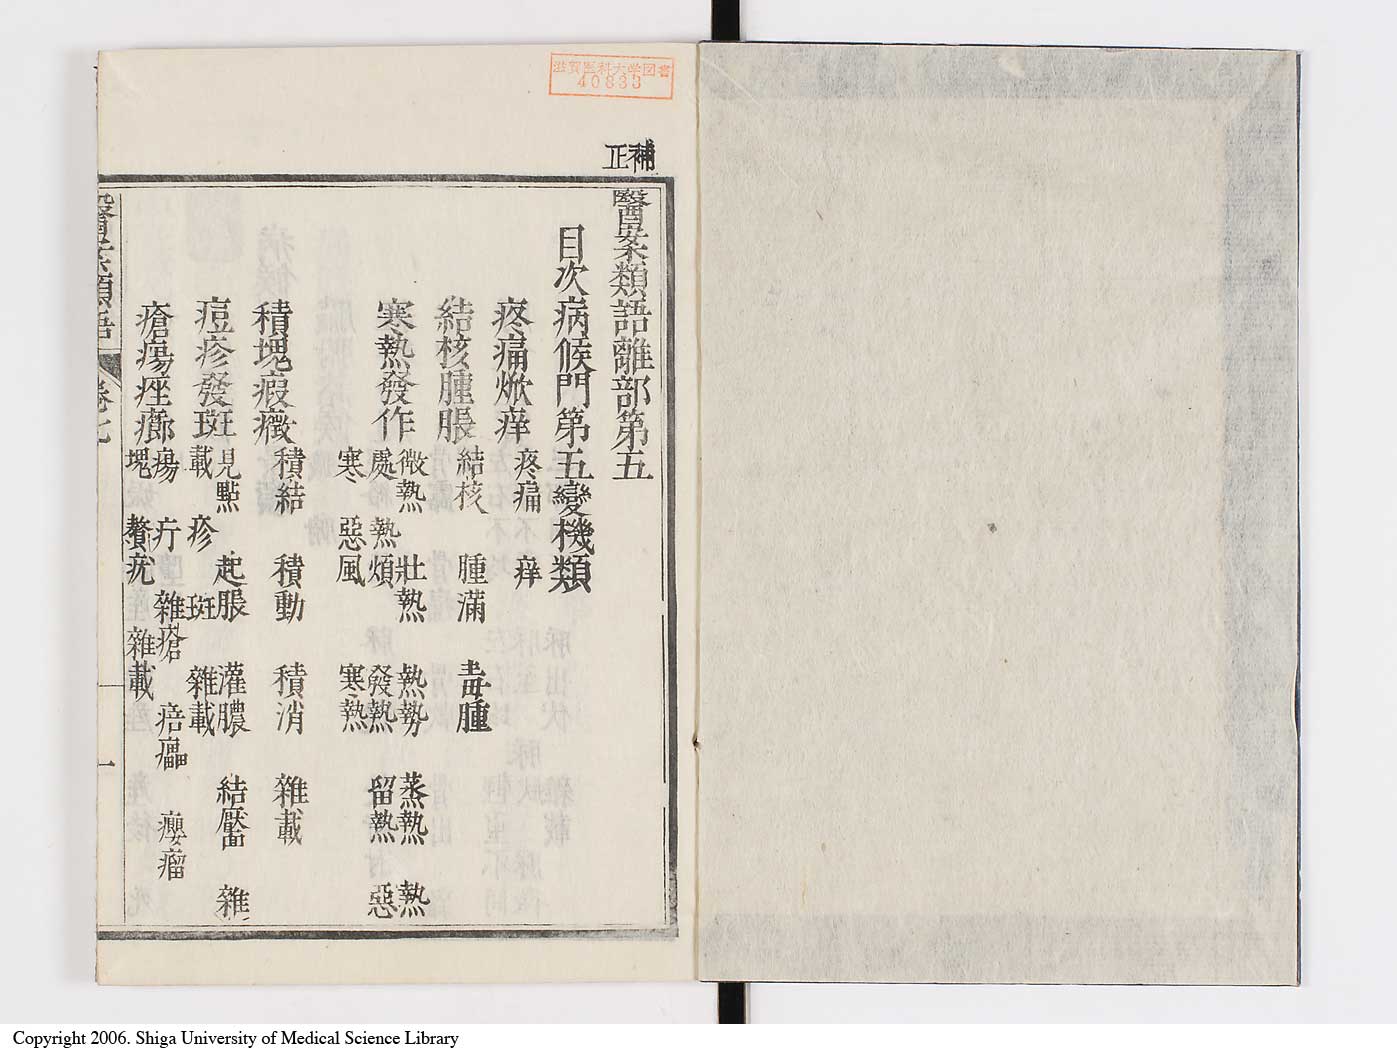 滋賀医科大学図書
40833
補正
醫案類語離部第五
目次病候門第五變機類
疼痛焮痒 疼痛 痒
結核腫脹 結核 腫滿 毒腫
寒熱發作 微熱 壯熱 熱勢 蒸熱 熱
處 熱煩 發熱 留熱 惡
寒 惡風 寒熱
積塊瘕癥 積結 積動 積消 雜載
痘疹發斑 見點 起脹 灌膿 結靨 雜
載 疹 斑 雜載
瘡瘍痤癤 瘍 疔 雜瘡 痞𤺺 癭瘤
塊 贅疣 雜載
醫案類語 卷七 一
Copyright 2006. Shiga University of Medical Science Library